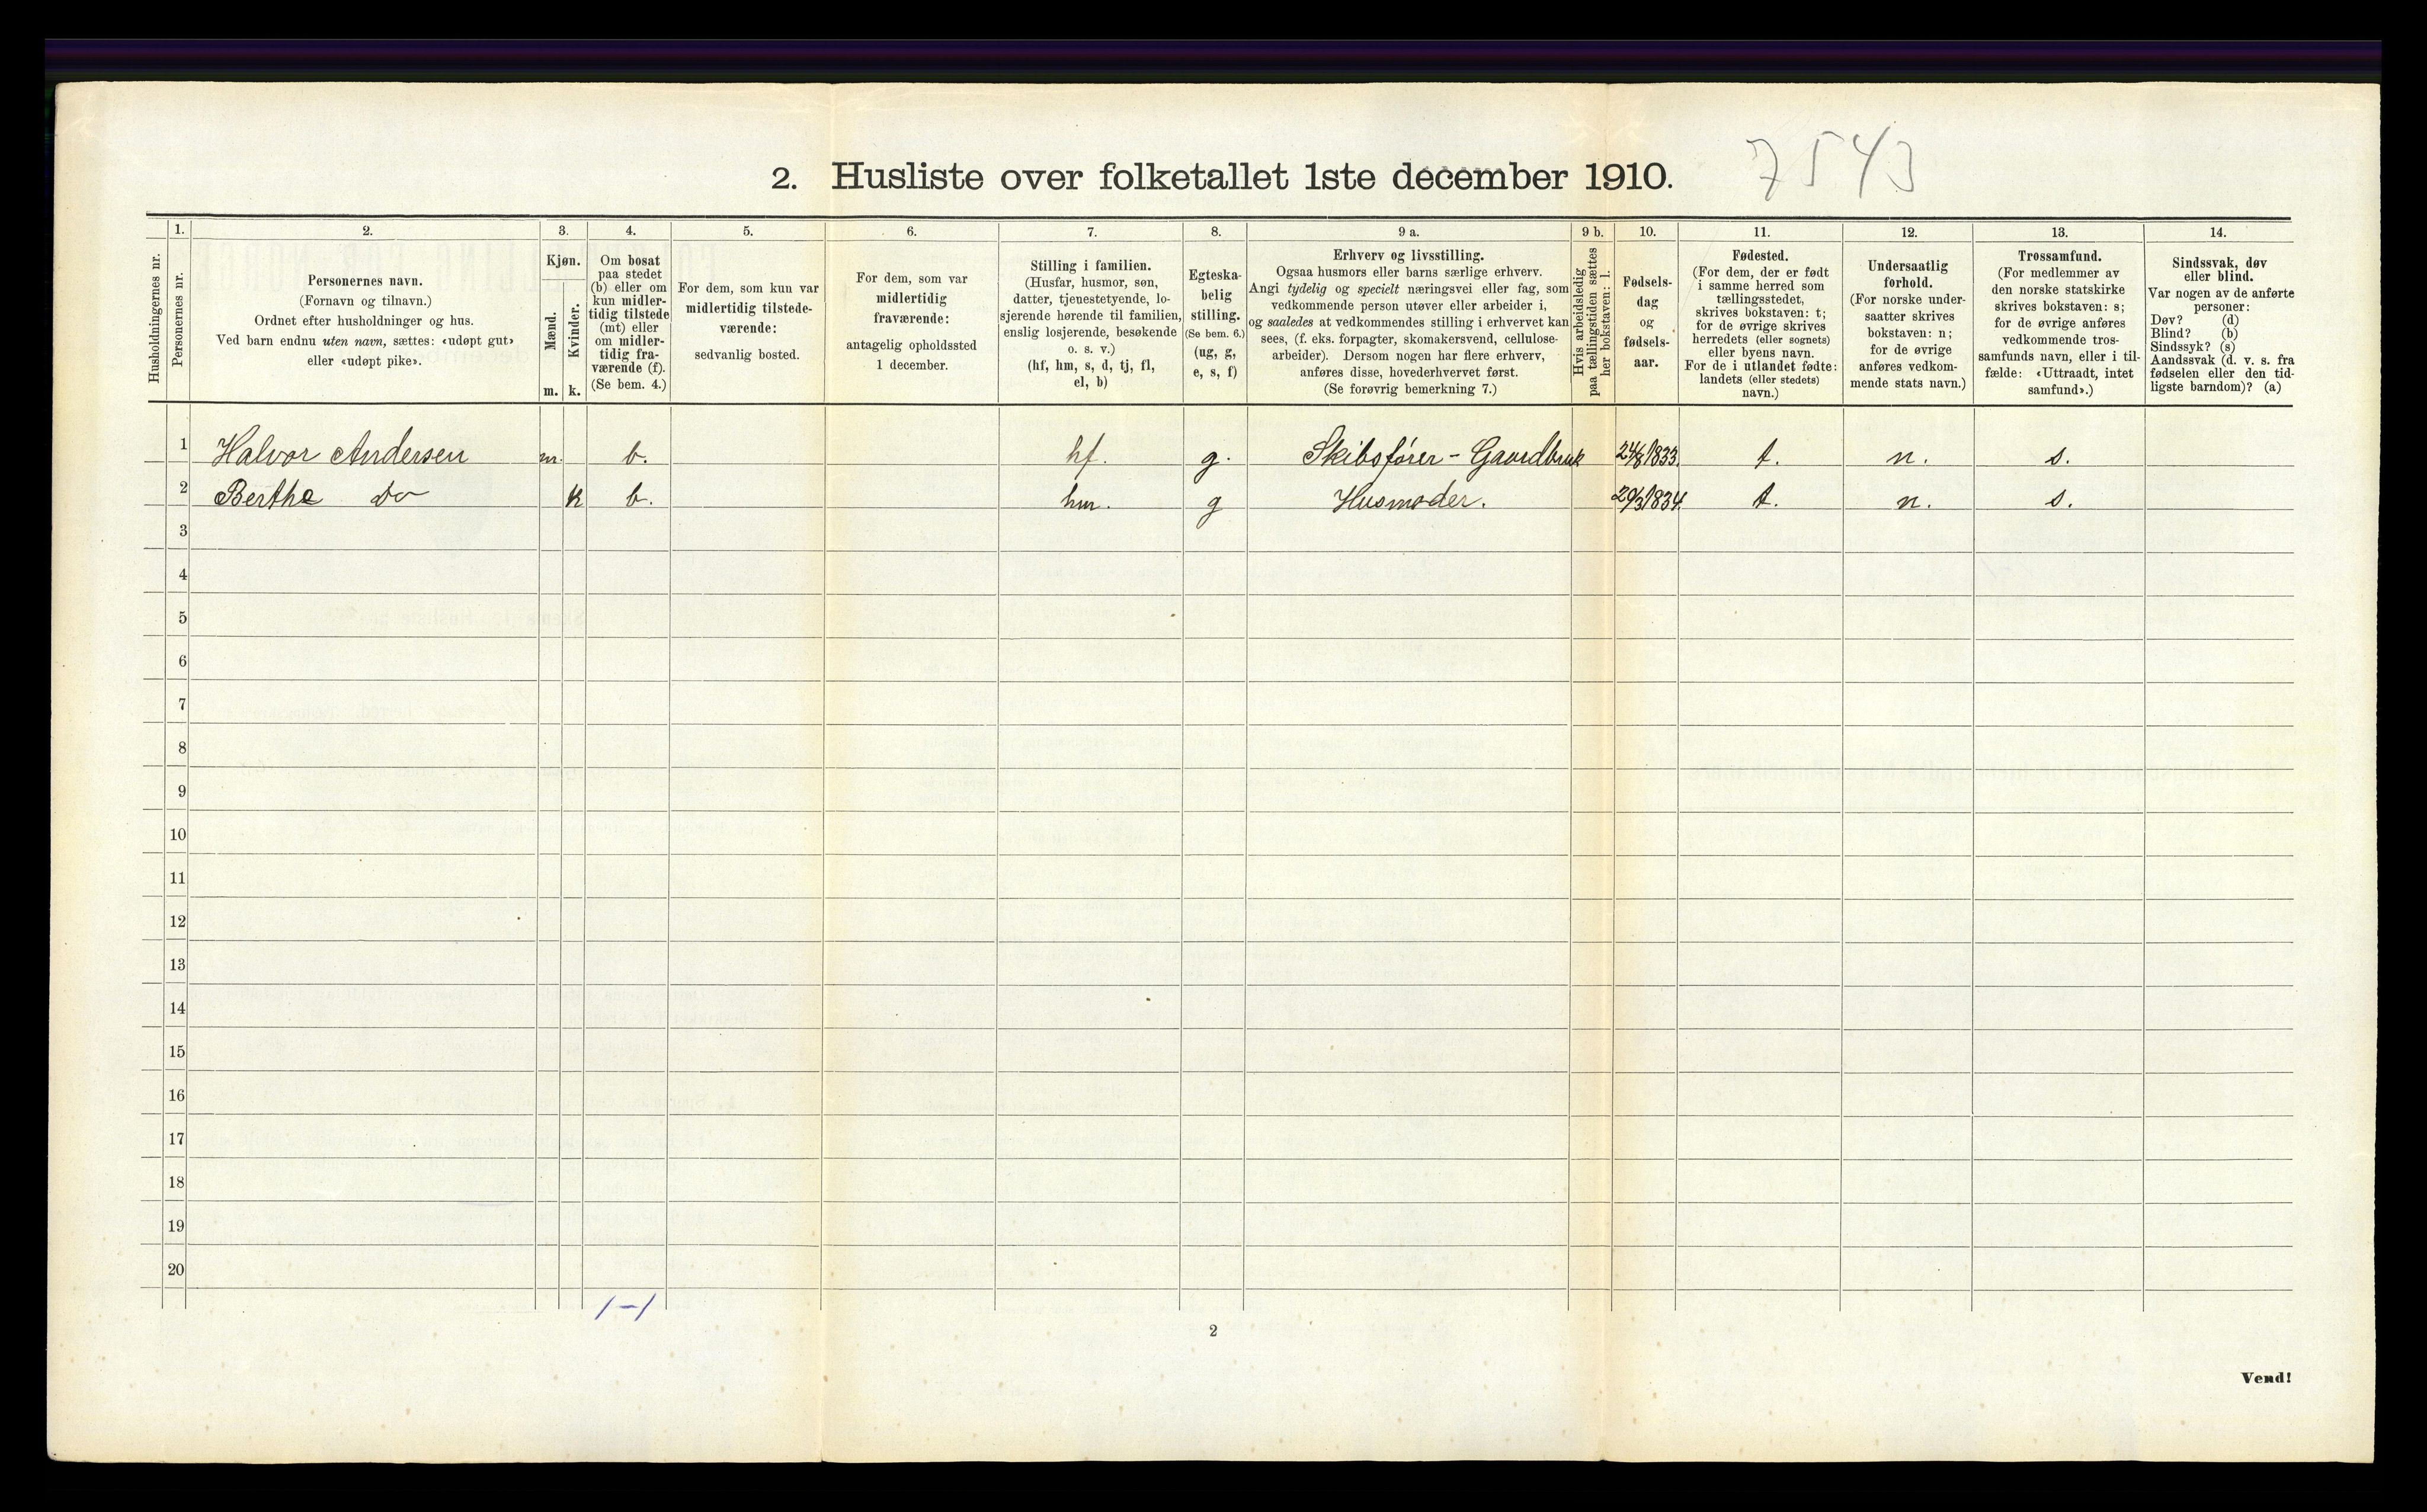 2. Husliste over folketallet 1ste december 1910.
7543
Husholdningernes nr.
1.
Personernes nr.
2.
Personernes navn.
(Fornavn og tilnavn.)
Ordnet efter husholdninger og hus.
Ved barn endnu uten navn, sættes: «udøpt gut»
eller «udøpt pike».
3.
Kjøn.
Mænd.
m.
Kvinder.
k.
4.
Om bosat
paa stedet
(b) eller om
kun midler-
tidig tilstede
(mt) eller
om midler-
tidig fra-
værende (f).
(Se bem. 4.)
5.
For dem, som kun var
midlertidig tilstede-
værende:
sedvanlig bosted.
6.
For dem, som var
midlertidig
fraværende:
antagelig opholdssted
1 december.
7.
Stilling i familien.
(Husfar, husmor, søn,
datter, tjenestetyende, lo-
sjerende hørende til familien,
enslig losjerende, besøkende
o. s. v.)
(hf, hm, s, d, tj, fl,
el, b)
8.
Egteska-
belig
stilling.
(Se bem. 6.)
(ug, g,
e, s, f)
9 a.
Erhverv og livsstilling.
Ogsaa husmors eller barns særlige erhverv.
Angi tydelig og specielt næringsvei eller fag, som
vedkommende person utøver eller arbeider i,
og saaledes at vedkommendes stilling i erhvervet kan
sees, (f. eks. forpagter, skomakersvend, cellulose-
arbeider). Dersom nogen har flere erhverv,
anføres disse, hovederhvervet først.
(Se forøvrig bemerkning 7.)
9 b.
Hvis arbeidsledig
paa tællingstiden sættes
her bokstaven: l.
10.
Fødsels-
dag
og
fødsels-
aar.
11.
Fødested.
(For dem, der er født
i samme herred som
tællingsstedet,
skrives bokstaven: t;
for de øvrige skrives
herredets (eller sognets)
eller byens navn.
For de i utlandet fødte:
landets (eller stedets)
navn.)
12.
Undersaatlig
forhold.
(For norske under-
saatter skrives
bokstaven: n;
for de øvrige
anføres vedkom-
mende stats navn.)
13.
Trossamfund.
(For medlemmer av
den norske statskirke
skrives bokstaven: s;
for de øvrige anføres
vedkommende tros-
samfunds navn, eller i til-
fælde: «Uttraadt, intet
samfund».)
14.
Sindssvak, døv
eller blind.
Var nogen av de anførte
personer:
Døv? (d)
Blind? (b)
Sindssyk? (s)
Aandssvak (d. v. s. fra
fødselen eller den tid-
ligste barndom)? (a)
1 Halvor Andersen m. b. hf. g. Skibsfører - Gaardbruk 24/8 1833. t. n. s.
2 Berthe Do k b. hm. g Husmoder. 20/3 1834. t. n. s.
3
4
5
6
7
8
9
10
11
12
13
14
15
16
17
18
19
20
1-1
2
Vend!